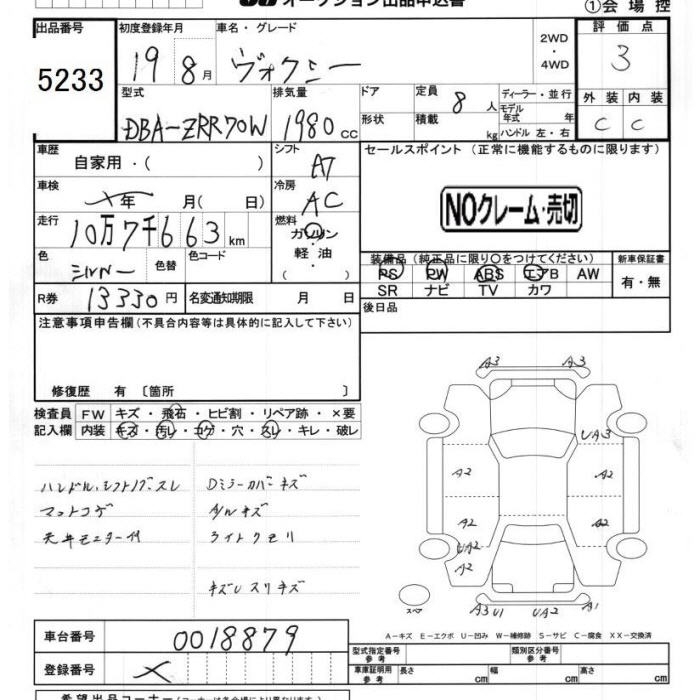 オークション出品申込書
①会場控
出品番号
5233
初度登録年月
19 8月
車名・グレード
ヴォクシー
2WD
・
4WD
評価点
3
外装 内装
C C
型式
DBA-ZRR70W
排気量
1980cc
ドア
形状
定員 8人
積載 kg
ディーラー・並行
モデル年式 年
ハンドル 左・右
車歴
自家用・( )
シフト
AT
セールスポイント (正常に機能するものに限ります)
NOクレーム・売切
車検
メ年 月( 日)
冷房
AC
走行
10万7千663km
燃料
ガソリン
・
軽油
・
色
シルバー
色替
色コード
装備品(純正品に限り〇をつけてください)
PS PW ABS エアB AW
SR ナビ TV カワ
新車保証書
有・無
R券 13330円
名変通知期限 月 日
後日品
注意事項申告欄(不具合内容等は具体的に記入して下さい)
修復歴 有〔箇所 〕
検査員記入欄
FW キズ・飛石・ヒビ割・リペア跡・×要
内装 キズ・汚レ・コゲ・穴・スレ・キレ・破レ
ハンドル、シフトノブスレ
マットコゲ
天井モニター付
Dミラーカバーキズ
A/Wキズ
ライトクモリ
キズUスリキズ
A3 A3
UA3
A2 A2
A2 A2
UA2 A2
A3 U1 UA2 A1
スペア
A-キズ E-エクボ U-凹み W-補修跡 S-サビ C-腐食 XX-交換済
車台番号
0018879
登録番号
メ
型式指定番号 参考
類別区分番号 参考
車庫証明用 参考
長さ cm
幅 cm
高さ cm
希望出品コーナー